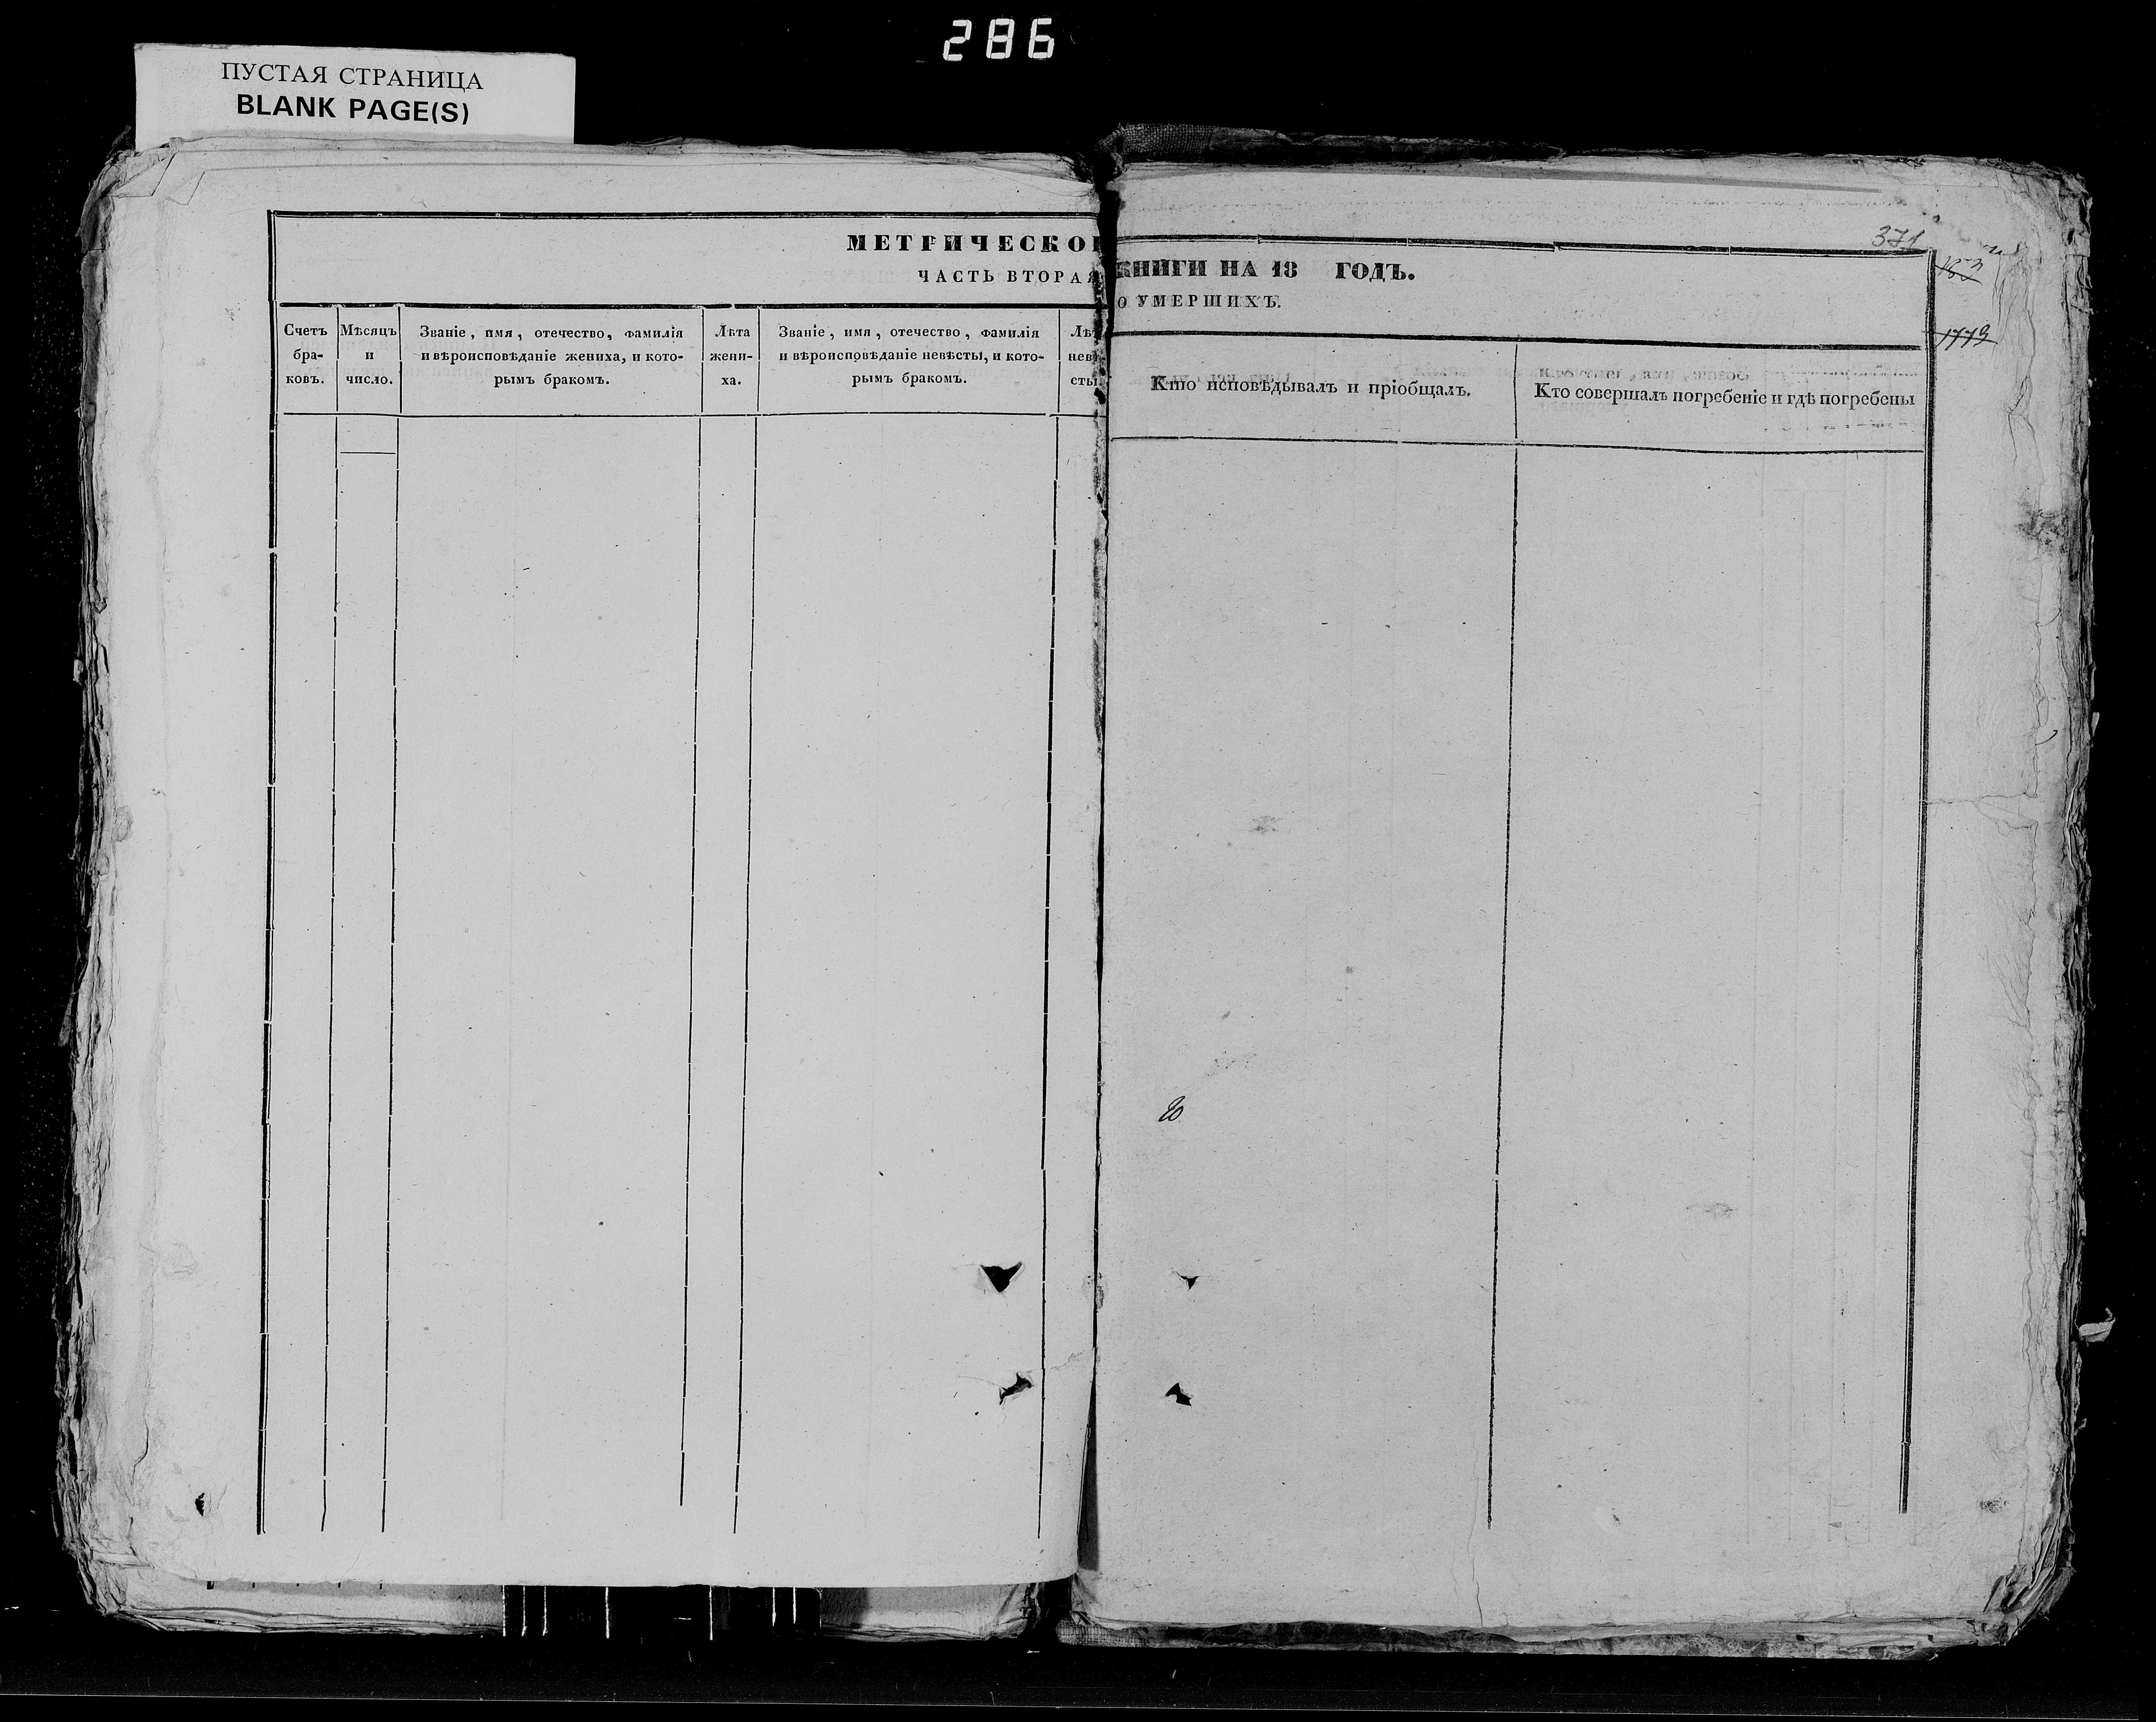 286
ПУСТАЯ СТРАНИЦА
BLANK PAGE(S)
МЕТРИЧЕСКО
ЧАСТЬ ВТОРАЯ
Счетъ бра- ковъ.
Мѣсяцъ и число.
Званіе, имя, отечество, фамилія
и вѣроисповѣданіе жениха, и кото-
рымъ бракомъ.
Лѣта жени- ха.
Званіе, имя, отечество, фамилія
и вѣроисповѣданіе невѣсты, и кото-
рымъ бракомъ.
Лѣт
нев
сты
371
КНИГИ НА 18 ГОДЪ.
О УМЕРШИХЪ.
1773
Кто исповѣдывалъ и пріобщалъ.
Кто совершалъ погребеніе и гдѣ погребены